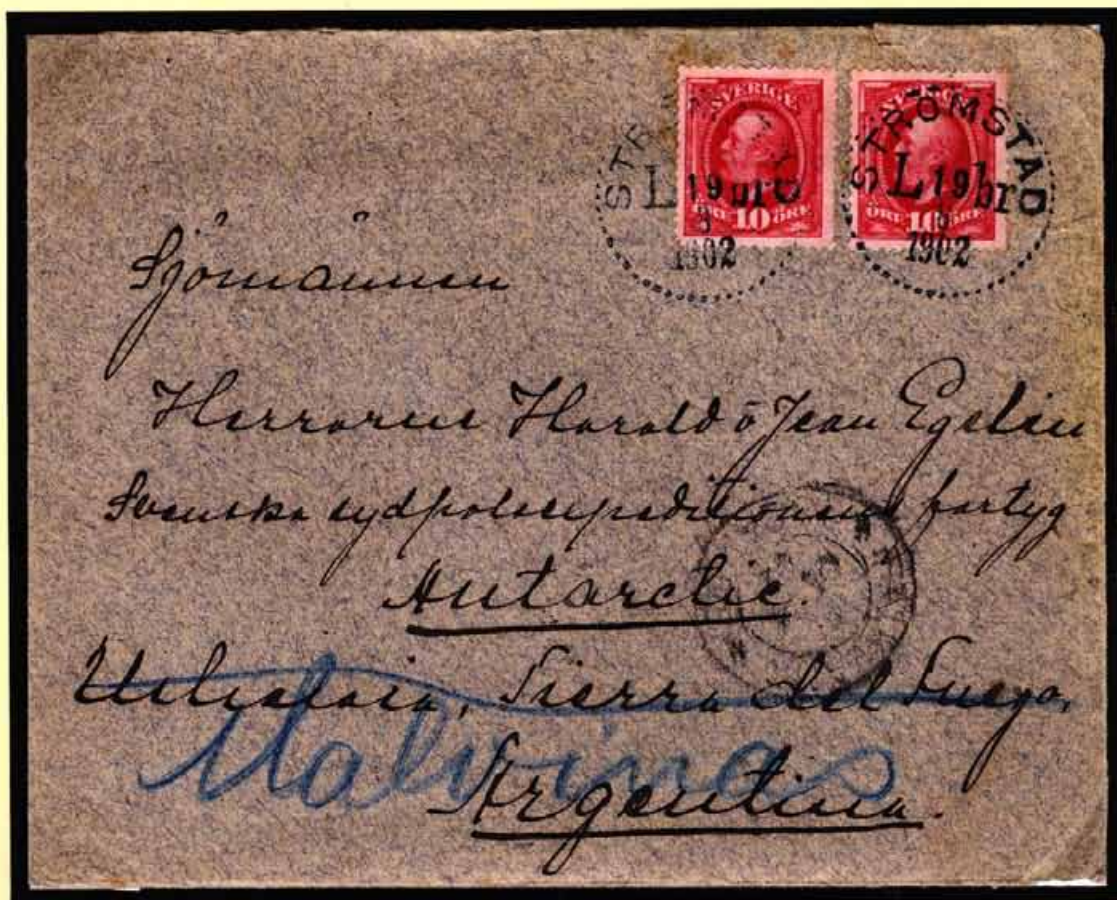 SVERIGE
SVERIGE
STRÖMSTAD
STR
L 19 brO
L 19 br
ÖRE 10 ÖRE
ÖRE 10 ÖRE
3
1902
1902
Sjömännen
Herrarne Harald o Jean Egelin
Svenska sydpolsexpeditionens fartyg
Antarctic.
Ushuaia, Tierra del Fuego,
Malvinas
Argentina.